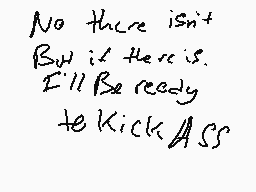 No there isn't
But if there is.
I'll Be ready
to Kick Ass